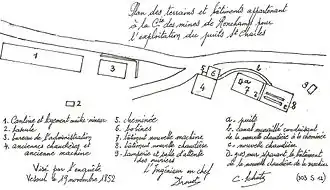 Plan des terrains et bâtiments appartenant
à la Cie des mines de Ronchamp pour
l'exploitation du puits St Charles
1
2
3
4
5
6
7
8
a
b
c
1. Cantine et logements
2. bascule
3. bureau de l'administration
4. anciennes chaudières et
ancienne machine
5. cheminée
6. bobines
7. bâtiment nouvelle machine
8. bâtiment nouvelle chaudière
9. lampisterie et salle d'attente
des mineurs
a. puits
b. canal nouvelle
de la nouvelle chaudière à la cheminée
c. nouvelle chaudière
d. séparant le bâtiment de
la nouvelle chaudière de la machine
Visé par l'enquête
Vesoul le 19 novembre 1852
L'Ingénieur en chef
Drouot
(303 S 12)